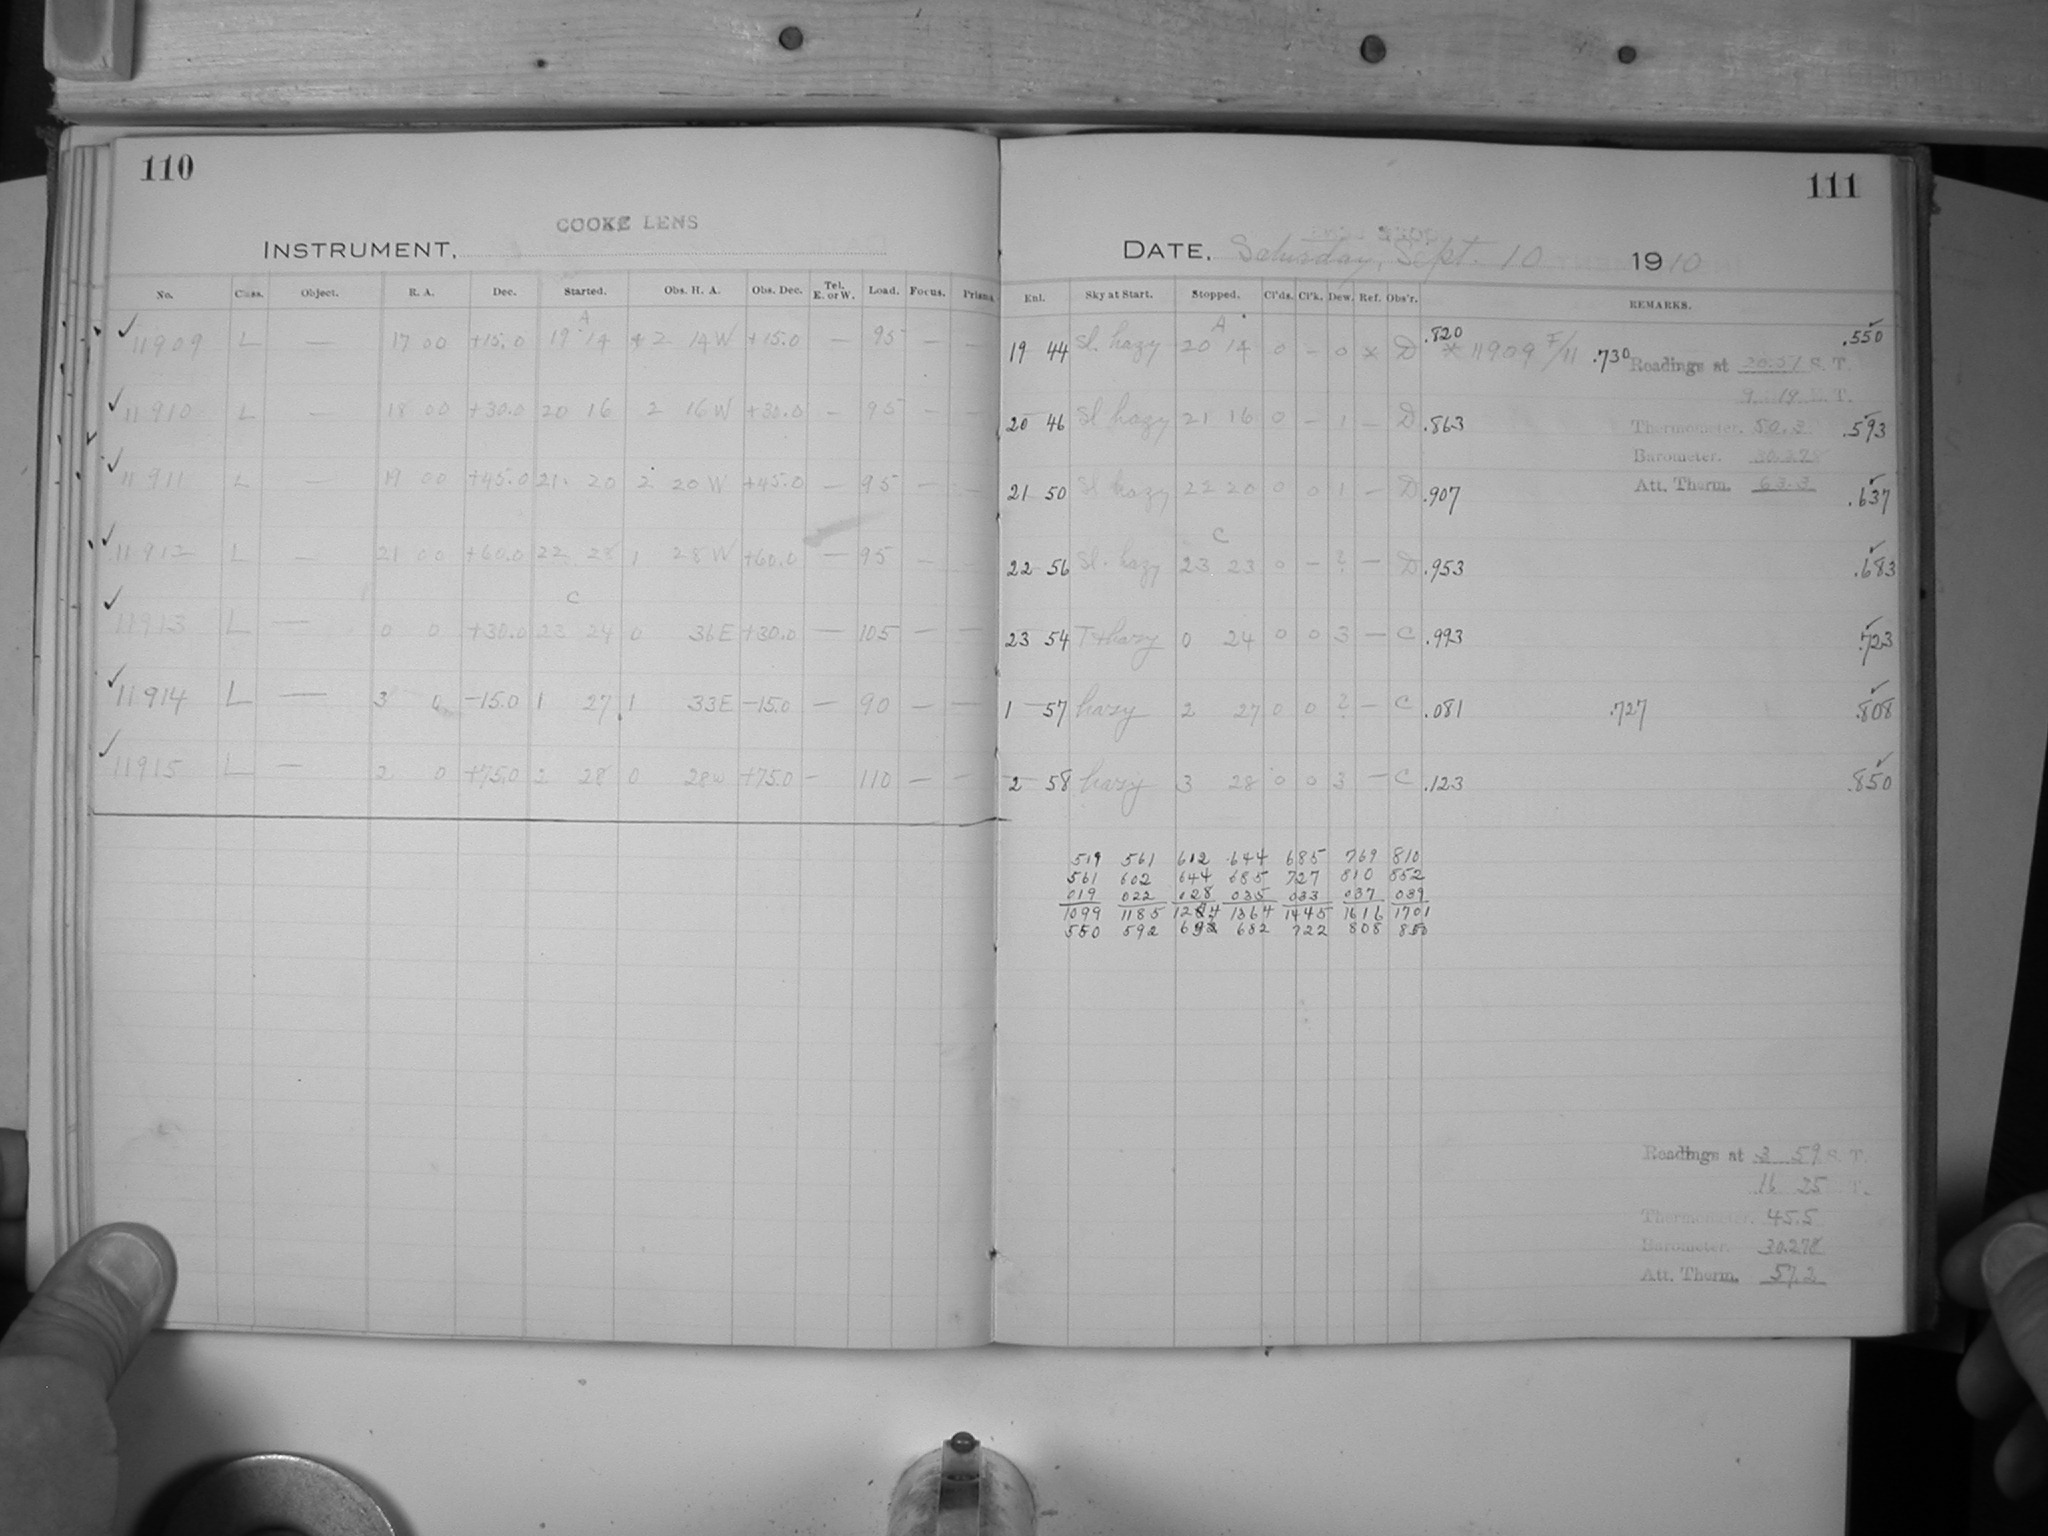 110
COOKE LENS
INSTRUMENT.
No. Class. Object. R. A. Dec. Started. Obs. H. A. Obs. Dec. Tel. E. or W. Load. Focus. Prisms
A
11909 L — 17 00 +15.0 19 14 2 14 W +15.0 — 95 — —
11910 L — 18 00 +30.0 20 16 2 16 W +30.0 — 95 — —
11911 L — 19 00 +45.0 21 20 2 20 W +45.0 — 95 — —
11912 L — 21 00 +60.0 22 28 1 28 W +60.0 — 95 — —
C
11913 L — 0 0 +30.0 23 24 0 36 E +30.0 — 105 — —
11914 L — 3 0 -15.0 1 27 1 33 E -15.0 — 90 — —
11915 L — 2 0 +75.0 2 28 0 28 w +75.0 — 110 — —
111
DATE. Saturday, Sept. 10 1910
Enl. Sky at Start. Stopped. Cl'ds. Cl'k. Dew. Ref. Obs'r. REMARKS.
A
19 44 Sl. hazy 20 14 0 — 0 * D .820 * 11909 F/11 .730 .550
Readings at 20.51 S. T.
9 18 T.
20 46 Sl hazy 21 16 0 — 1 — D .863 Thermometer. 50.3 .593
Barometer. 30.278
21 50 Sl hazy 22 20 0 0 1 — D .907 Att. Therm. 63.3 .637
C
22 56 Sl. hazy 23 23 0 — 2 — D .953 .683
23 54 hazy 0 24 0 0 3 — C .993 .723
1 57 hazy 2 27 0 0 2 — C .081 .727 .808
2 58 hazy 3 28 0 0 3 — C .123 .850
519 561 612 644 685 769 810
561 602 644 685 727 810 852
019 022 028 035 033 037 039
1099 1185 1284 1364 1445 1616 1701
550 592 682 722 808 850
Readings at 3 59 S. T.
16 25 T.
Thermometer. 45.5
Barometer. 30.278
Att. Therm. 57.2